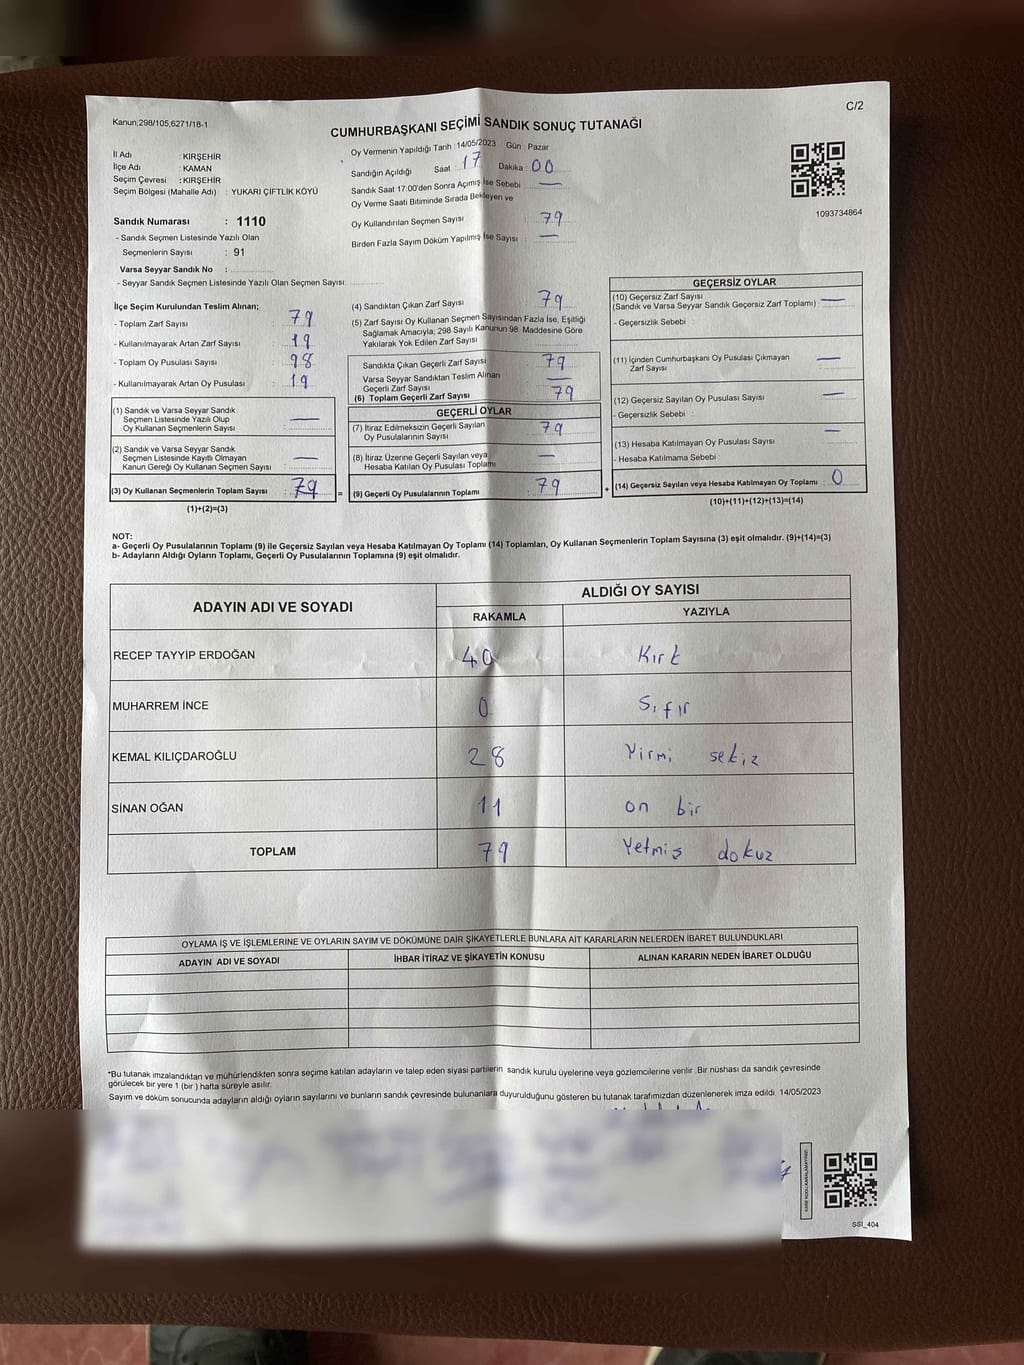 C/2
Kanun;298/105,6271/18-1
CUMHURBAŞKANI SEÇİMİ SANDIK SONUÇ TUTANAĞI
İl Adı : KIRŞEHİR
İlçe Adı : KAMAN
Seçim Çevresi : KIRŞEHİR
Seçim Bölgesi (Mahalle Adı) : YUKARI ÇİFTLİK KÖYÜ
Sandık Numarası : 1110
- Sandık Seçmen Listesinde Yazılı Olan
Seçmenlerin Sayısı : 91
Varsa Seyyar Sandık No :
- Seyyar Sandık Seçmen Listesinde Yazılı Olan Seçmen Sayısı:
Oy Vermenin Yapıldığı Tarih : 14/05/2023 Gün Pazar
Sandığın Açıldığı Saat : 17 Dakika : 00
Sandık Saat 17:00'den Sonra Açımış İse Sebebi : —
Oy Verme Saati Bitiminde Sırada Bekleyen ve
Oy Kullandırılan Seçmen Sayısı : 79
Birden Fazla Sayım Döküm Yapılmış İse Sayısı : —
1093734864
İlçe Seçim Kurulundan Teslim Alınan;
- Toplam Zarf Sayısı : 79
- Kullanılmayarak Artan Zarf Sayısı : 19
- Toplam Oy Pusulası Sayısı : 98
- Kullanılmayarak Artan Oy Pusulası : 19
(1) Sandık ve Varsa Seyyar Sandık
Seçmen Listesinde Yazılı Olup
Oy Kullanan Seçmenlerin Sayısı : —
(2) Sandık ve Varsa Seyyar Sandık
Seçmen Listesinde Kayıtlı Olmayan
Kanun Gereği Oy Kullanan Seçmen Sayısı : —
(3) Oy Kullanan Seçmenlerin Toplam Sayısı : 79 =
(1)+(2)=(3)
(4) Sandıktan Çıkan Zarf Sayısı : 79
(5) Zarf Sayısı Oy Kullanan Seçmen Sayısından Fazla İse, Eşitliği
Sağlamak Amacıyla; 298 Sayılı Kanunun 98. Maddesine Göre
Yakılarak Yok Edilen Zarf Sayısı :
Sandıkta Çıkan Geçerli Zarf Sayısı : 79
Varsa Seyyar Sandıktan Teslim Alınan
Geçerli Zarf Sayısı : —
(6) Toplam Geçerli Zarf Sayısı : 79
GEÇERLİ OYLAR
(7) İtiraz Edilmeksizin Geçerli Sayılan
Oy Pusulalarının Sayısı : 79
(8) İtiraz Üzerine Geçerli Sayılan veya
Hesaba Katılan Oy Pusulası Toplamı : —
(9) Geçerli Oy Pusulalarının Toplamı : 79 +
GEÇERSİZ OYLAR
(10) Geçersiz Zarf Sayısı
(Sandık ve Varsa Seyyar Sandık Geçersiz Zarf Toplamı) : —
- Geçersizlik Sebebi :
(11) İçinden Cumhurbaşkanı Oy Pusulası Çıkmayan
Zarf Sayısı : —
(12) Geçersiz Sayılan Oy Pusulası Sayısı : —
- Geçersizlik Sebebi :
(13) Hesaba Katılmayan Oy Pusulası Sayısı : —
- Hesaba Katılmama Sebebi :
(14) Geçersiz Sayılan veya Hesaba Katılmayan Oy Toplamı : 0
(10)+(11)+(12)+(13)=(14)
NOT:
a- Geçerli Oy Pusulalarının Toplamı (9) ile Geçersiz Sayılan veya Hesaba Katılmayan Oy Toplamı (14) Toplamları, Oy Kullanan Seçmenlerin Toplam Sayısına (3) eşit olmalıdır. (9)+(14)=(3)
b- Adayların Aldığı Oyların Toplamı, Geçerli Oy Pusulalarının Toplamına (9) eşit olmalıdır.
ADAYIN ADI VE SOYADI ALDIĞI OY SAYISI
RAKAMLA YAZIYLA
RECEP TAYYİP ERDOĞAN 40 Kırk
MUHARREM İNCE 0 Sıfır
KEMAL KILIÇDAROĞLU 28 Yirmi sekiz
SİNAN OĞAN 11 on bir
TOPLAM 79 Yetmiş dokuz
OYLAMA İŞ VE İŞLEMLERİNE VE OYLARIN SAYIM VE DÖKÜMÜNE DAİR ŞİKAYETLERLE BUNLARA AİT KARARLARIN NELERDEN İBARET BULUNDUKLARI
ADAYIN ADI VE SOYADI İHBAR İTİRAZ VE ŞİKAYETİN KONUSU ALINAN KARARIN NEDEN İBARET OLDUĞU
*Bu tutanak imzalandıktan ve mühürlendikten sonra seçime katılan adayların ve talep eden siyasi partilerin sandık kurulu üyelerine veya gözlemcilerine verilir. Bir nüshası da sandık çevresinde
görülecek bir yere 1 (bir) hafta süreyle asılır.
Sayım ve döküm sonucunda adayların aldığı oyların sayılarını ve bunların sandık çevresinde bulunanlara duyurulduğunu gösteren bu tutanak tarafımızdan düzenlenerek imza edildi. 14/05/2023
SSI_404